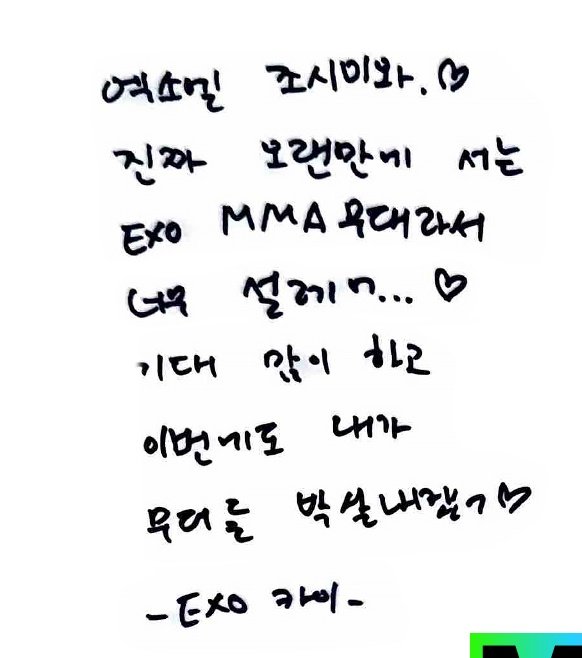 엑소엘 조심히와.♡
진짜 오랜만에 서는
EXO MMA 무대라서
너무 설레ㅁ...♡
기대 많이 하고
이번에도 내가
무대를 박살내겠ㅇ♡
-EXO 카이-
M